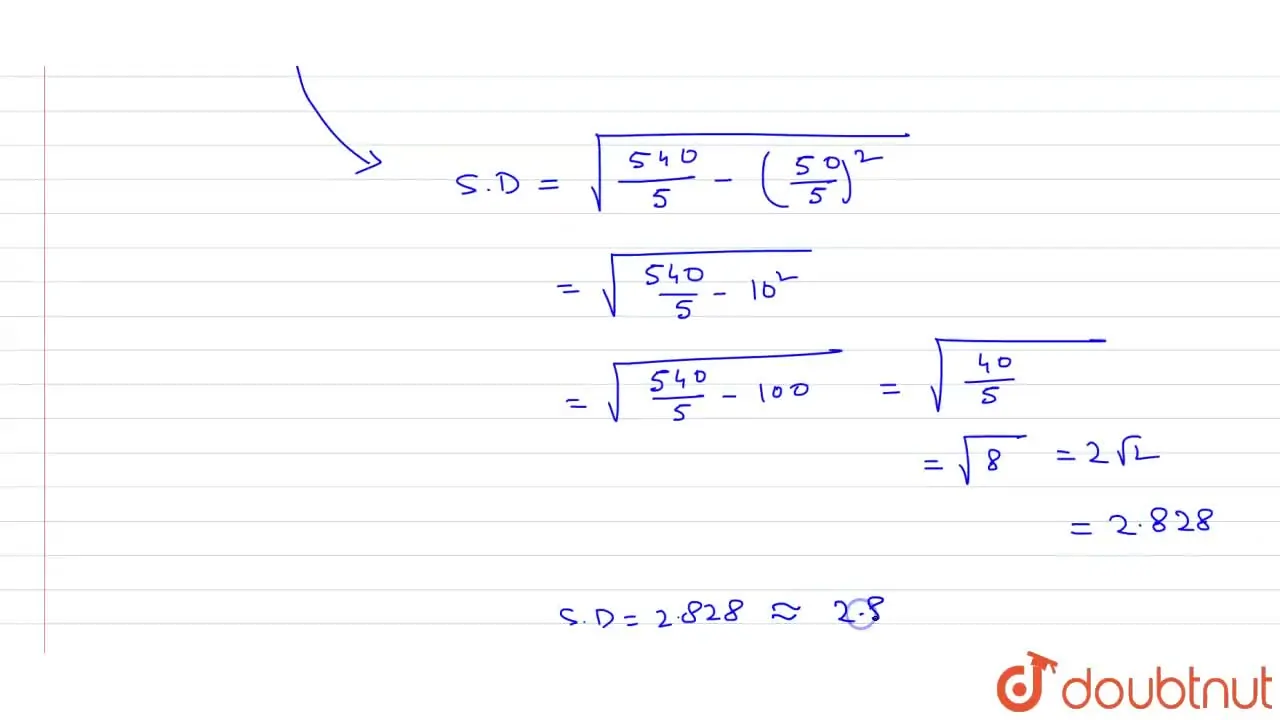 S.D = √(540/5 - (50/5)²)
= √(540/5 - 10²)
= √(540/5 - 100) = √(40/5)
= √8 = 2√2
= 2.828
S.D = 2.828 ≈ 2.8
doubtnut